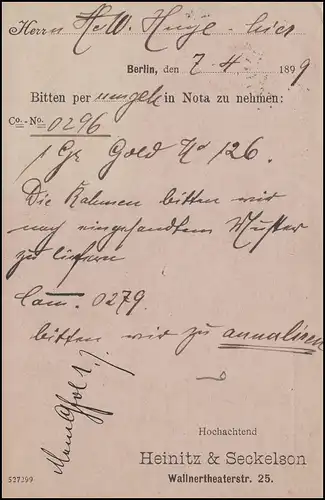 Herrn H. W. Hüge - hier
Berlin, den 7 4 1899
Bitten per umgeh in Nota zu nehmen:
Co.-No. 0296
1 Gr Gold No 126.
Die Rahmen bitten wir
nach eingesandtem Muster
zu liefern
Com. 0279.
bitten wir zu annuliren
Hochachtend
Heinitz & Seckelson
Wallnertheaterstr. 25.
527399